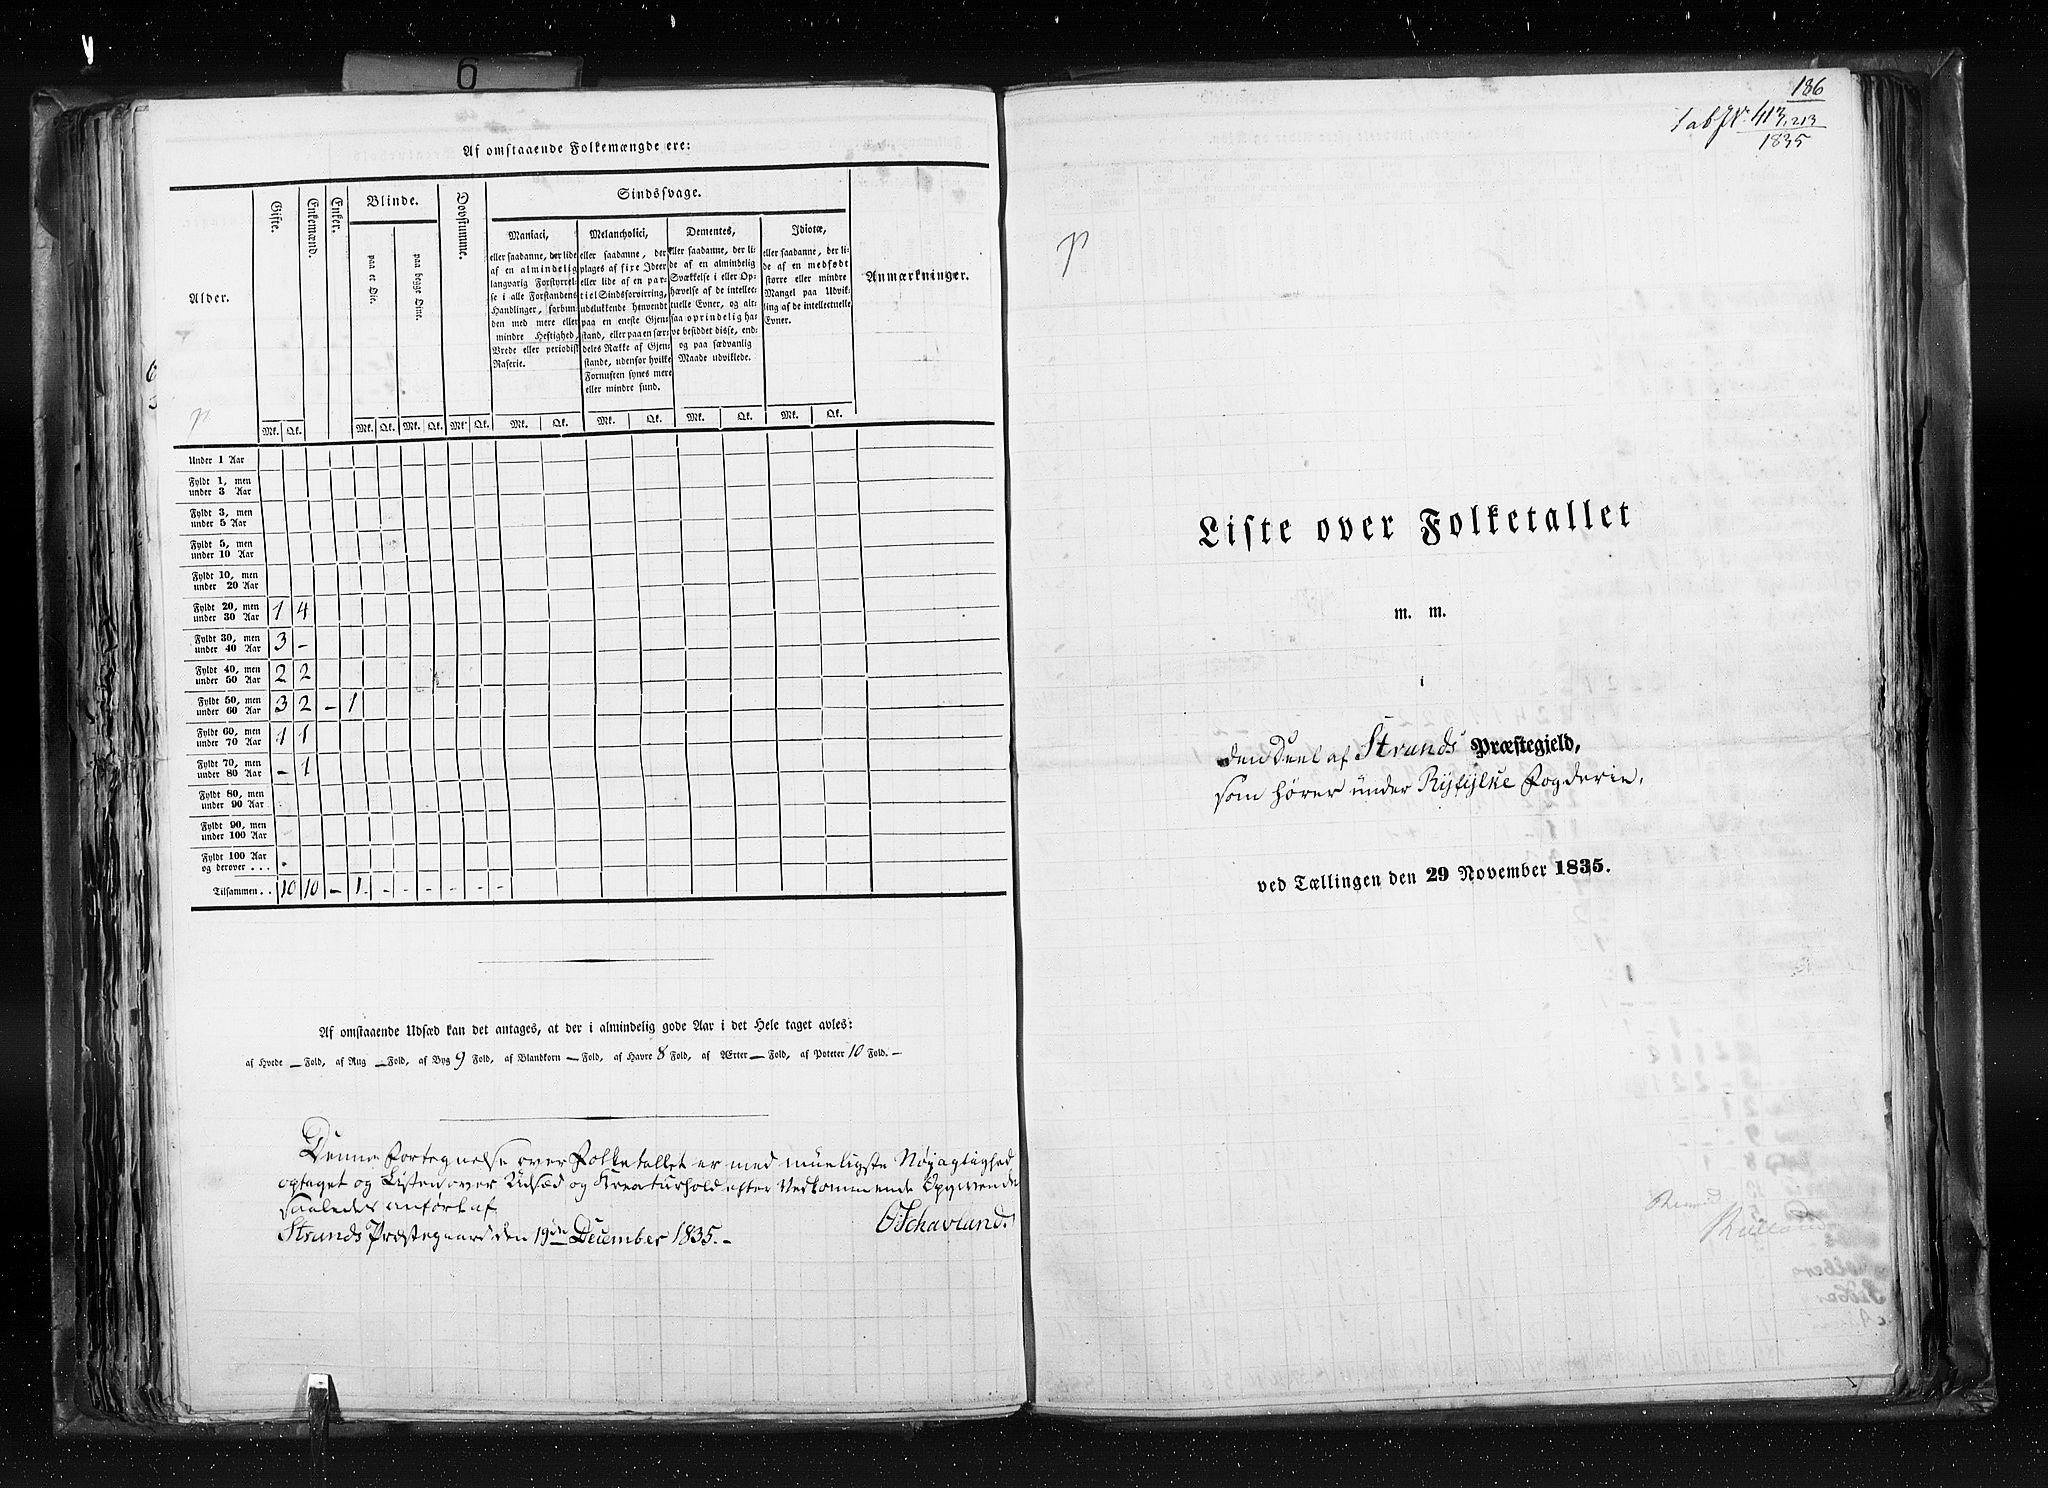 6
Af omstaaende Folkemængde ere:
Alder.
Gifte.
Enkemænd.
Enker.
Blinde.
paa et Øie.
paa begge Øine.
Døvstumme.
Sindssvage.
Maniaci,
eller saadanne, der lide
af en almindelig
langvarig Forstyrrel-
se i alle Forstandens
Handlinger, forbun-
den med mere eller
mindre Heftighed,
Vrede eller periodisk
Raserie.
Melancholici,
eller saadanne, der
plages af fixe Ideer
eller lide af en par-
tiel Sindsforvirring,
udelukkende henvendt
paa en eneste Gjen-
stand, eller paa en sær-
deles Række af Gjen-
stande, udenfor hvilke
Fornuften synes mere
eller mindre sund.
Dementes,
eller saadanne, der li-
de af en almindelig
Svækkelse i eller Op-
hævelse af de intellec-
tuelle Evner, og alt-
saa oprindelig ha-
ve besiddet disse, end-
og paa sædvanlig
Maade udviklede.
Idiotæ,
eller saadanne, der li-
de af en medfødt
større eller mindre
Mangel paa Udvik-
ling af de intellectuelle
Evner.
Anmærkninger.
Mk. Qk. Mk. Qk. Mk. Qk. Mk. Qk. Mk. Qk. Mk. Qk. Mk. Qk. Mk. Qk.
Under 1 Aar
Fyldt 1, men
under 3 Aar
Fyldt 3, men
under 5 Aar
Fyldt 5, men
under 10 Aar
Fyldt 10, men
under 20 Aar
Fyldt 20, men
under 30 Aar 1 4
Fyldt 30, men
under 40 Aar 3 -
Fyldt 40, men
under 50 Aar 2 2
Fyldt 50, men
under 60 Aar 3 2 - 1
Fyldt 60, men
under 70 Aar 1 1
Fyldt 70, men
under 80 Aar - 1
Fyldt 80, men
under 90 Aar
Fyldt 90, men
under 100 Aar
Fyldt 100 Aar
og derover . . .
Tilsammen . . 10 10 - 1. - - - - - -
Af omstaaende Udsæd kan det antages, at der i almindelig gode Aar i det Hele taget avles:
af Hvede — Fold, af Rug — Fold, af Byg 9 Fold, af Blandkorn — Fold, af Havre 8 Fold, af Ærter — Fold, af Poteter 10 Fold. —
Denne Fortegnelse over Folketallet er med mueligste Nøiagtighed
optaget og Listen over Udsæd og Kreaturhold efter Vedkommende Opgivende
saaledes anført af
Strands Præstegaard den 19de December 1835. - O Schavland.
186
Tab N. 413, 213
1835
Liste over Folketallet
m. m.
i
den Deel af Strands Præstegjeld,
som hører under Ryfylke Fogderie,
ved Tællingen den 29 November 1835.